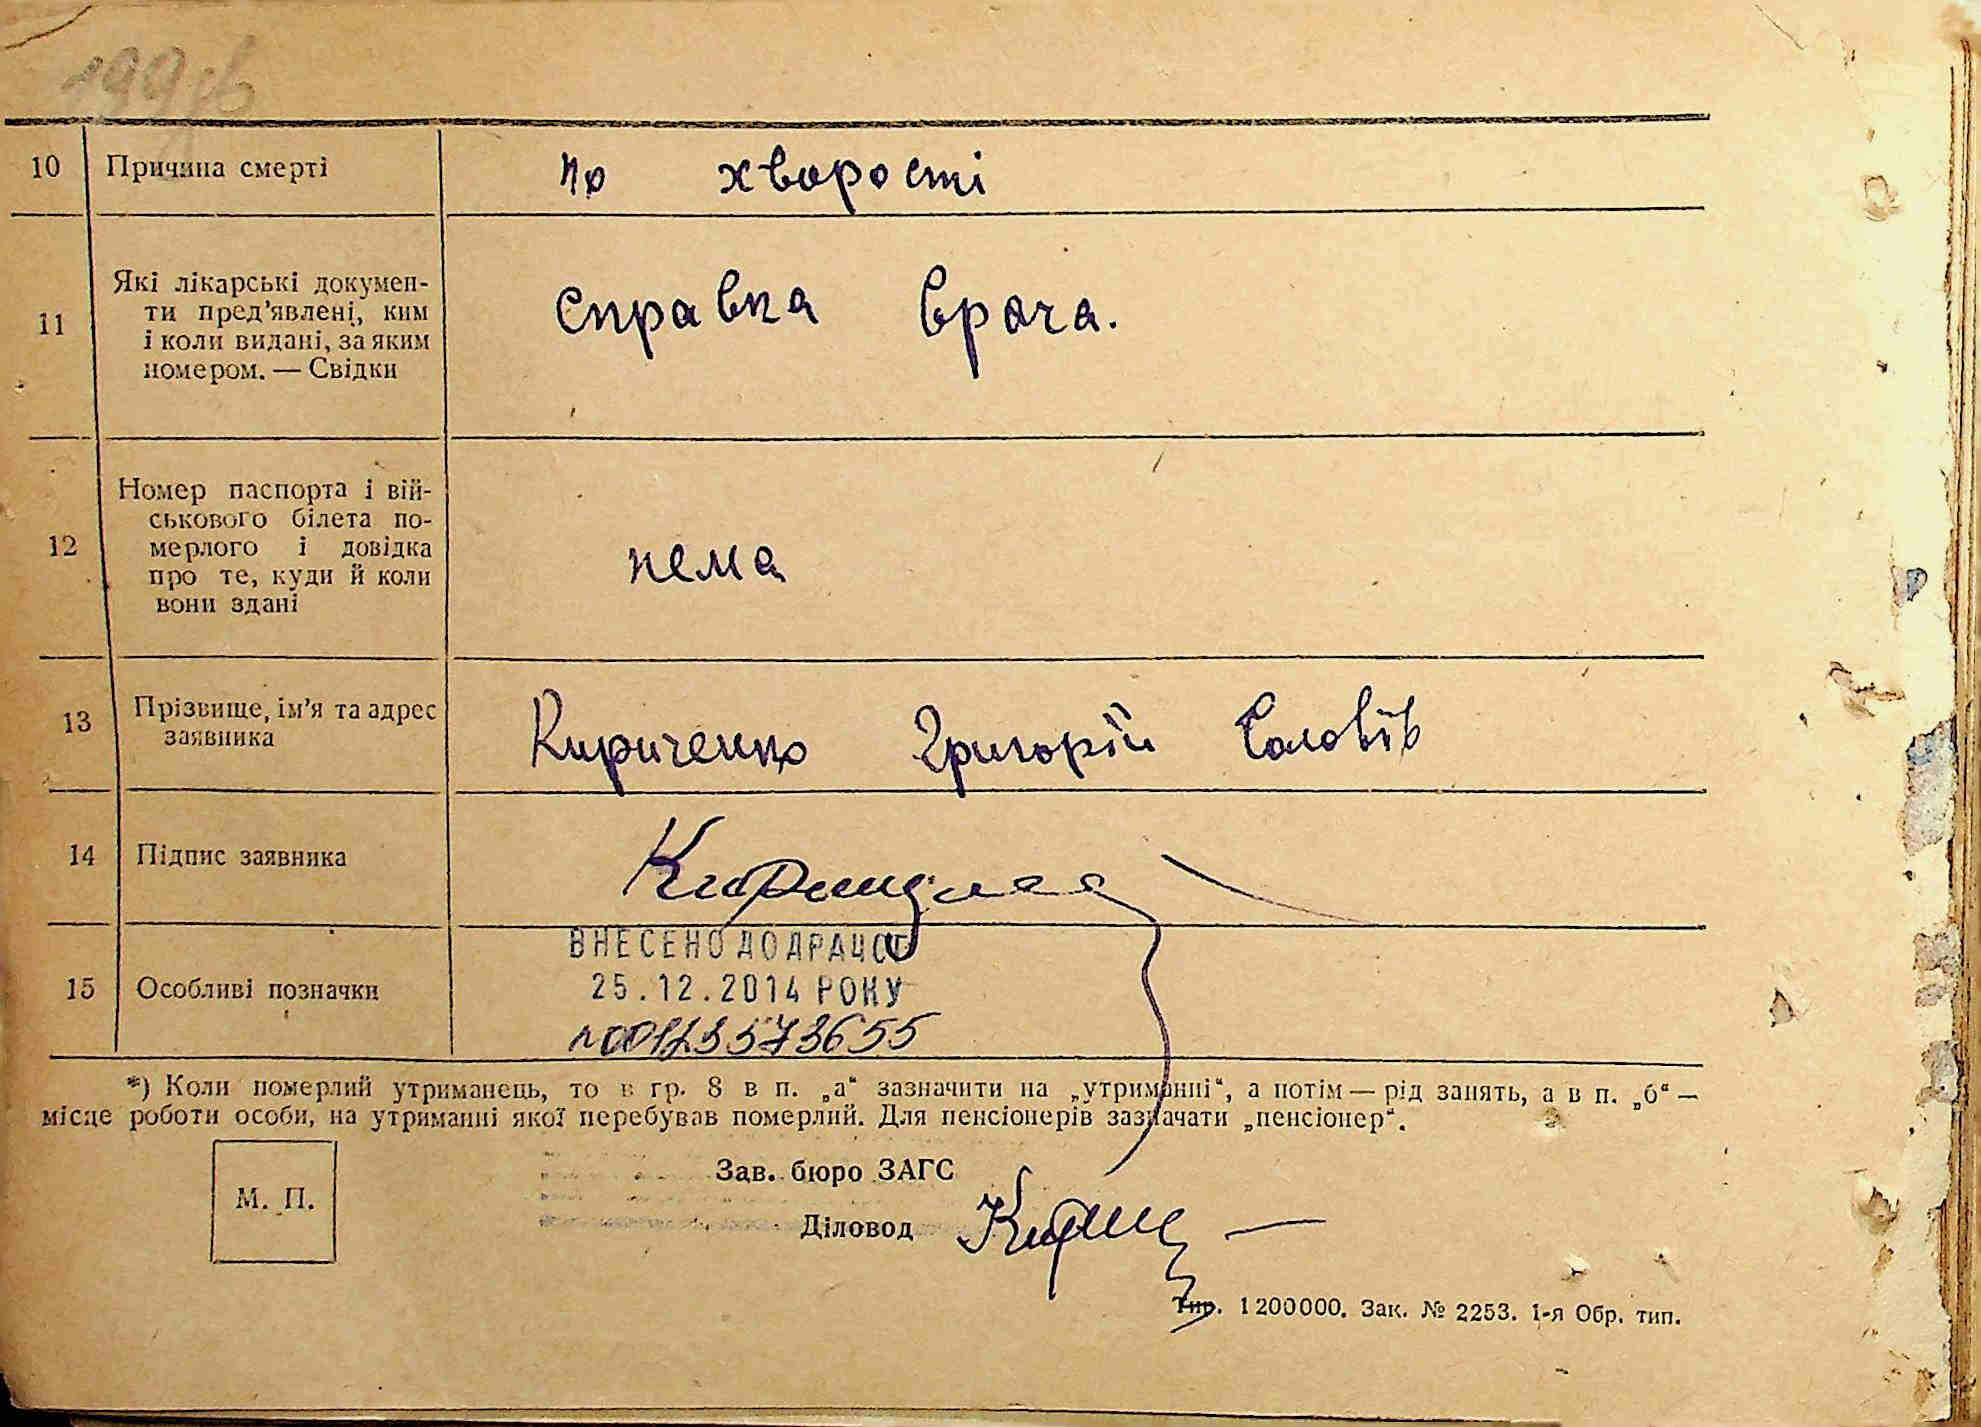 199зв
10 Причина смерті по хворості
11 Які лікарські докумен-
ти пред'явлені, ким
і коли видані, за яким
номером. — Свідки
справка врача.
12 Номер паспорта і вій-
ськового білета по-
мерлого і довідка
про те, куди й коли
вони здані
нема
13 Прізвище, ім'я та адрес
заявника
Кириченко Григорій Соловїв
14 Підпис заявника
15 Особливі позначки
ВНЕСЕНО ДО ДРАЦСГ
25.12.2014 РОКУ
00123573655
*) Коли померлий утриманець, то в гр. 8 в п. „а“ зазначити на „утриманні“, а потім — рід занять, а в п. „б“ —
місце роботи особи, на утриманні якої перебував померлий. Для пенсіонерів зазначати „пенсіонер“.
М. П.
Зав. бюро ЗАГС
Діловод
Тир. 1200000. Зак. № 2253. 1-я Обр. тип.